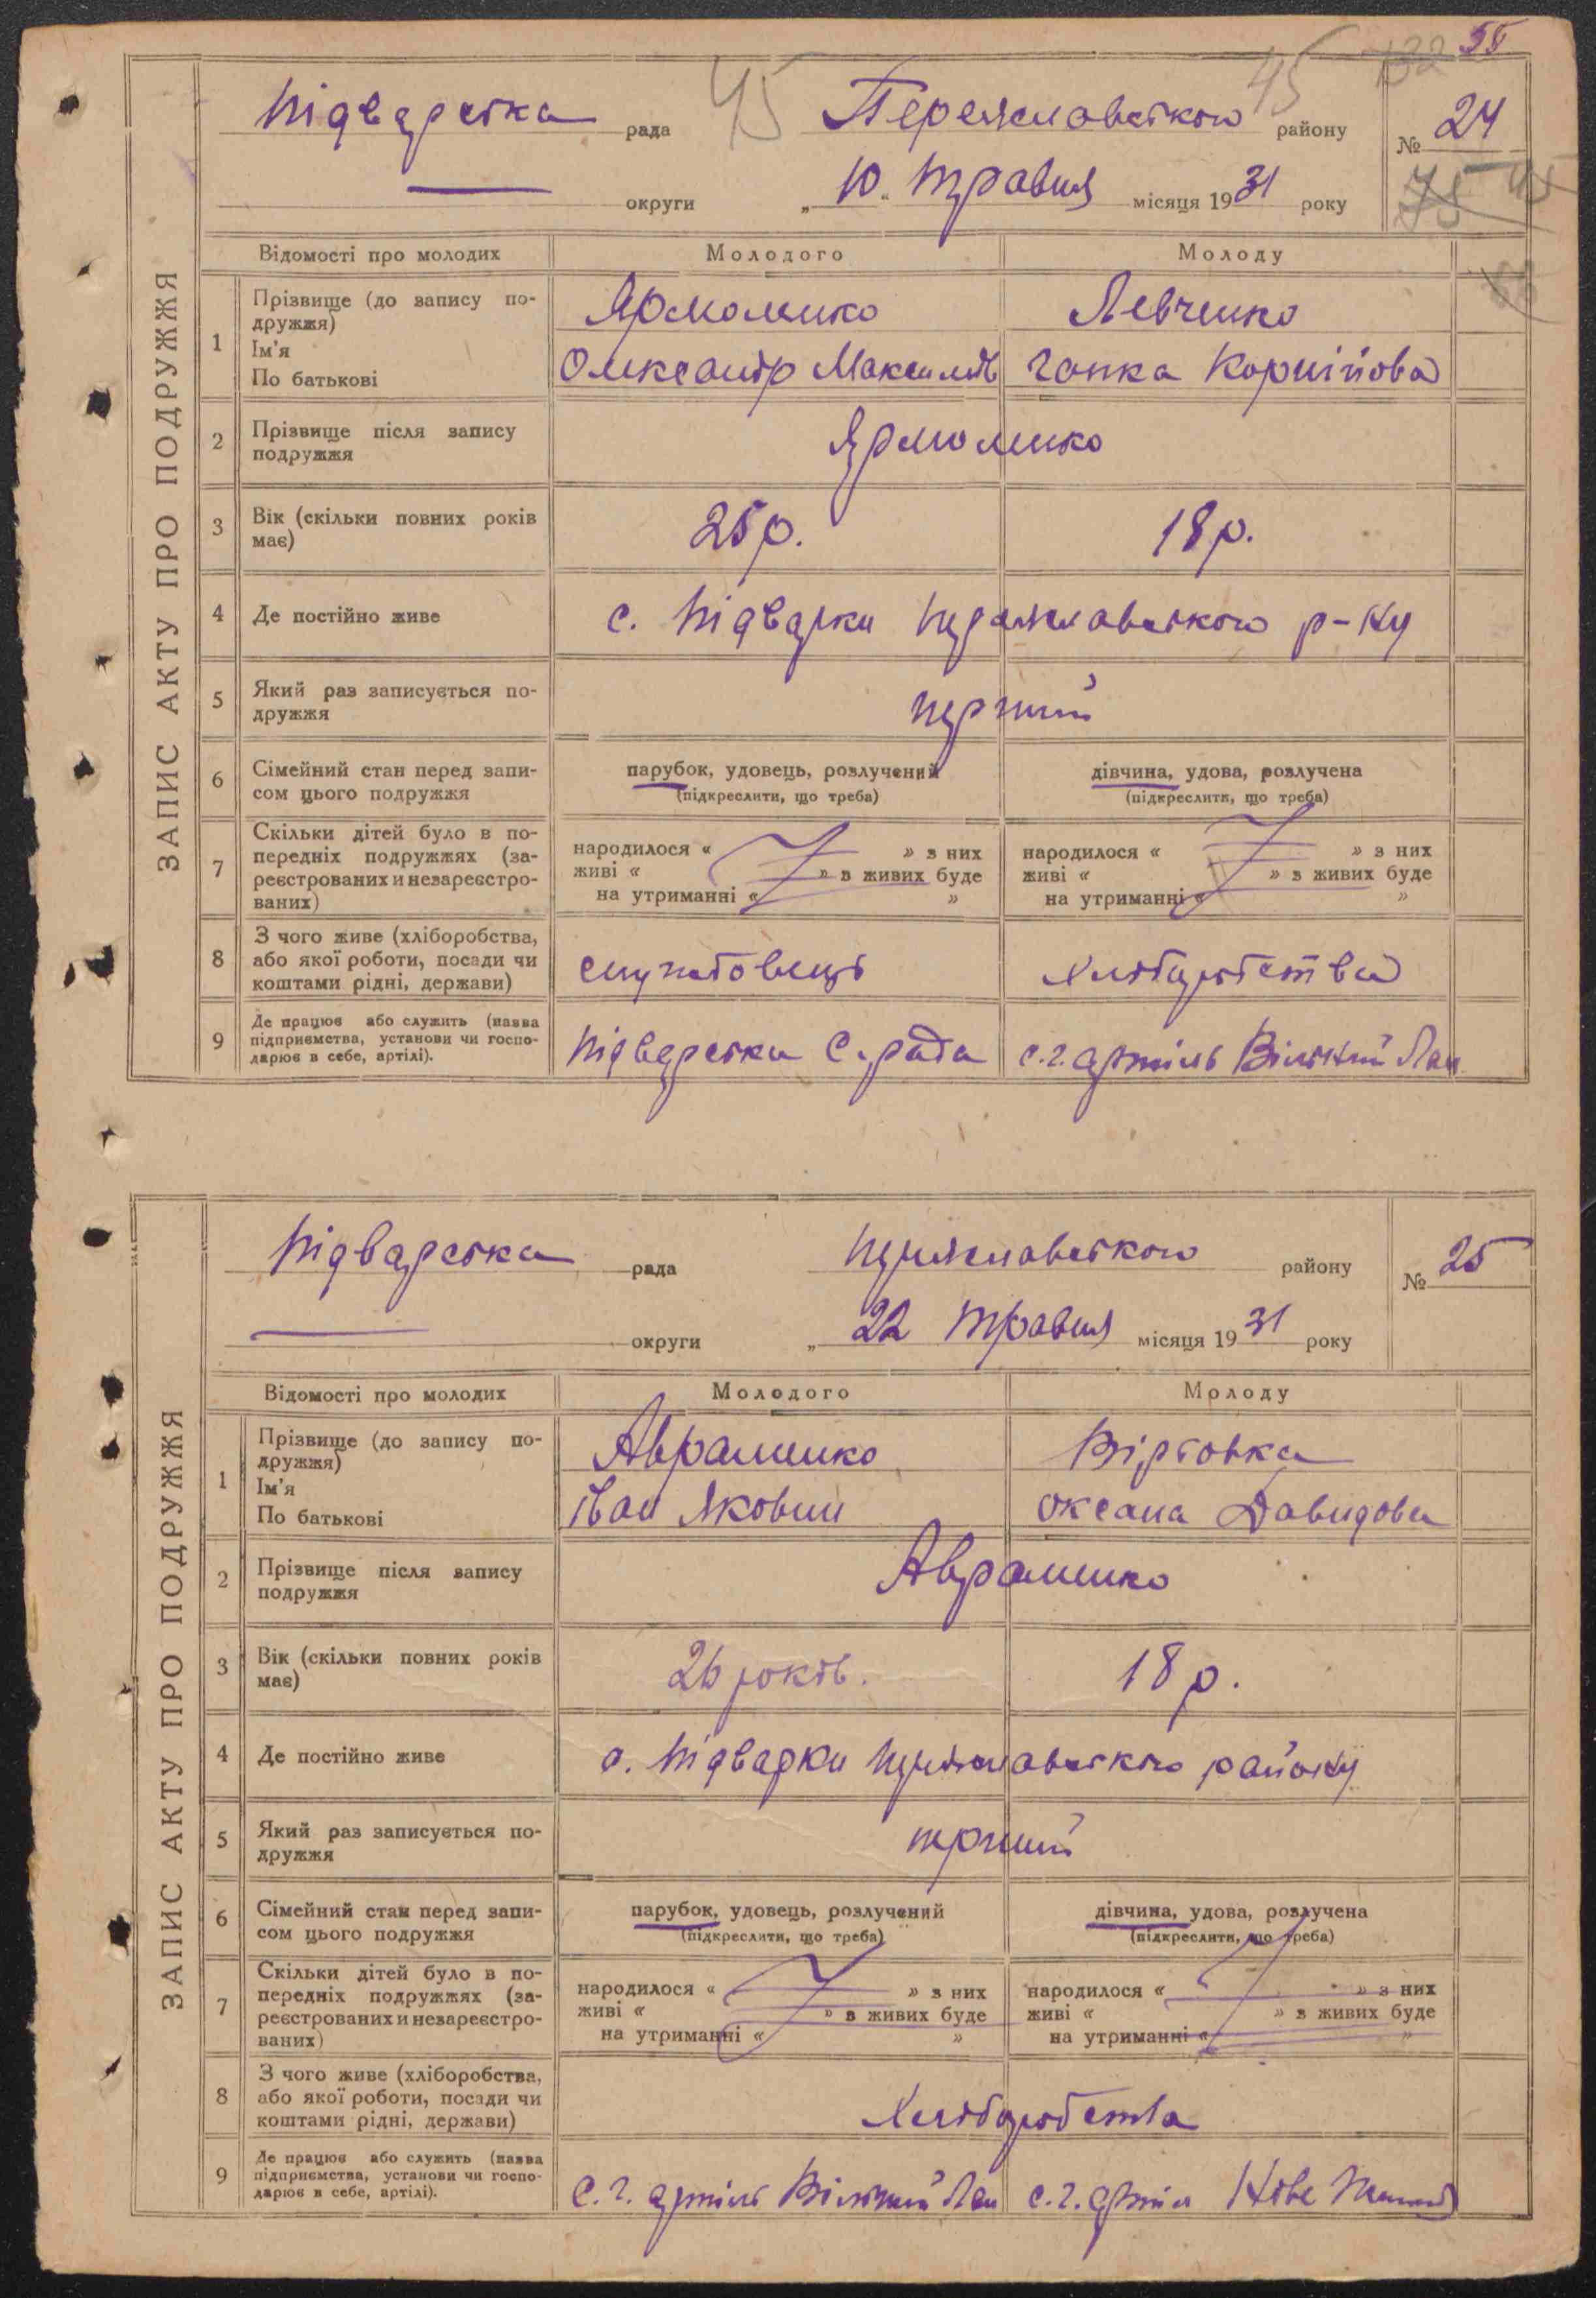 55
45 45 132
Підварська рада Переяславського району № 24
округи „10„ травня місяця 1931 року
75 45
ЗАПИС АКТУ ПРО ПОДРУЖЖЯ
Відомості про молодих Молодого Молоду
1 Прізвище (до запису подружжя) Ярмоленко Левченко
Ім'я
По батькові Олександр Максимів Ганка Корнійова
2 Прізвище після запису подружжя Ярмоленко
3 Вік (скільки повних років має) 25 р. 18 р.
4 Де постійно живе с. Підварки Переяславського р-ну
5 Який раз записується подружжя перший
6 Сімейний стан перед записом цього подружжя парубок, удовець, розлучений дівчина, удова, розлучена
(підкреслити, що треба) (підкреслити, що треба)
7 Скільки дітей було в попередніх подружжях (зареєстрованих и незареєстрованих)
народилося « » з них народилося « » з них
живі « » в живих буде живі « » в живих буде
на утриманні « » на утриманні « »
8 З чого живе (хліборобства, або якої роботи, посади чи коштами рідні, держави) службовець Хліборобства
9 Де працює або служить (назва підприємства, установи чи господарює в себе, артілі). Підварська С. рада с.г. артіль Вільний Лан
Підварська рада Переяславського району № 25
округи „ 22 травня місяця 1931 року
ЗАПИС АКТУ ПРО ПОДРУЖЖЯ
Відомості про молодих Молодого Молоду
1 Прізвище (до запису подружжя) Авраменко Вірьовка
Ім'я
По батькові Іван Яковин Оксана Давидова
2 Прізвище після запису подружжя Авраменко
3 Вік (скільки повних років має) 26 років. 18 р.
4 Де постійно живе с. Підварки Переяславського району
5 Який раз записується подружжя перший
6 Сімейний стан перед записом цього подружжя парубок, удовець, розлучений дівчина, удова, розлучена
(підкреслити, що треба) (підкреслити, що треба)
7 Скільки дітей було в попередніх подружжях (зареєстрованих и незареєстрованих)
народилося « » з них народилося « » з них
живі « » в живих буде живі « » в живих буде
на утриманні « » на утриманні « »
8 З чого живе (хліборобства, або якої роботи, посади чи коштами рідні, держави) Хліборобства
9 Де працює або служить (назва підприємства, установи чи господарює в себе, артілі). С.г. артіль Вільний Лан с.г. артіль Нове Життя